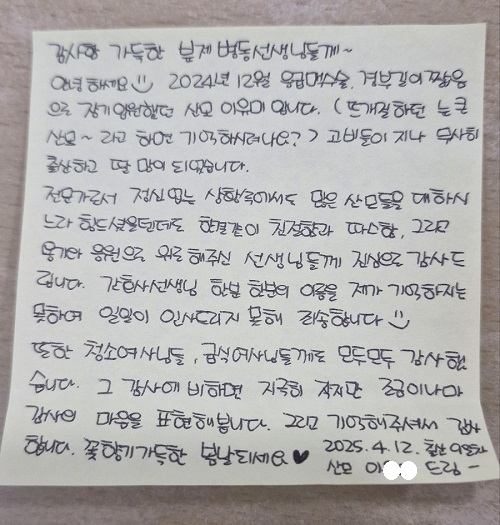 감사함 가득한 분께 병동선생님들께~
안녕하세요 2024년 12월 응급맥수술, 경부길이 짧음
으로 장기입원했던 산모 이유미 입니다. (뜨개질하던 눈 큰
산모~ 라고 하면 기억하시려나요?) 고비들이 지나 무사히
출산하고 딸 맘이 되었습니다.
전문가로서 정신없는 상황속에서도 많은 산모들을 대하시
느라 힘드셨을텐데도 한결같이 친절함과 따스함, 그리고
용기와 응원으로 위로해주신 선생님들께 진심으로 감사드
립니다. 간호사선생님 한분 한분의 이름을 제가 기억하지는
못하여 일일이 인사드리지 못해 죄송합니다
또한 청소여사님들, 급식여사님들께도 모두모두 감사했
습니다. 그 감사에 비하면 지극히 작지만 조금이나마
감사의 마음을 표현해봅니다. 그리고 기억해주셔서 감사
합니다. 꽃향기 가득한 봄날되세요 ♥ 2025. 4. 12.
산모 이 드림 -